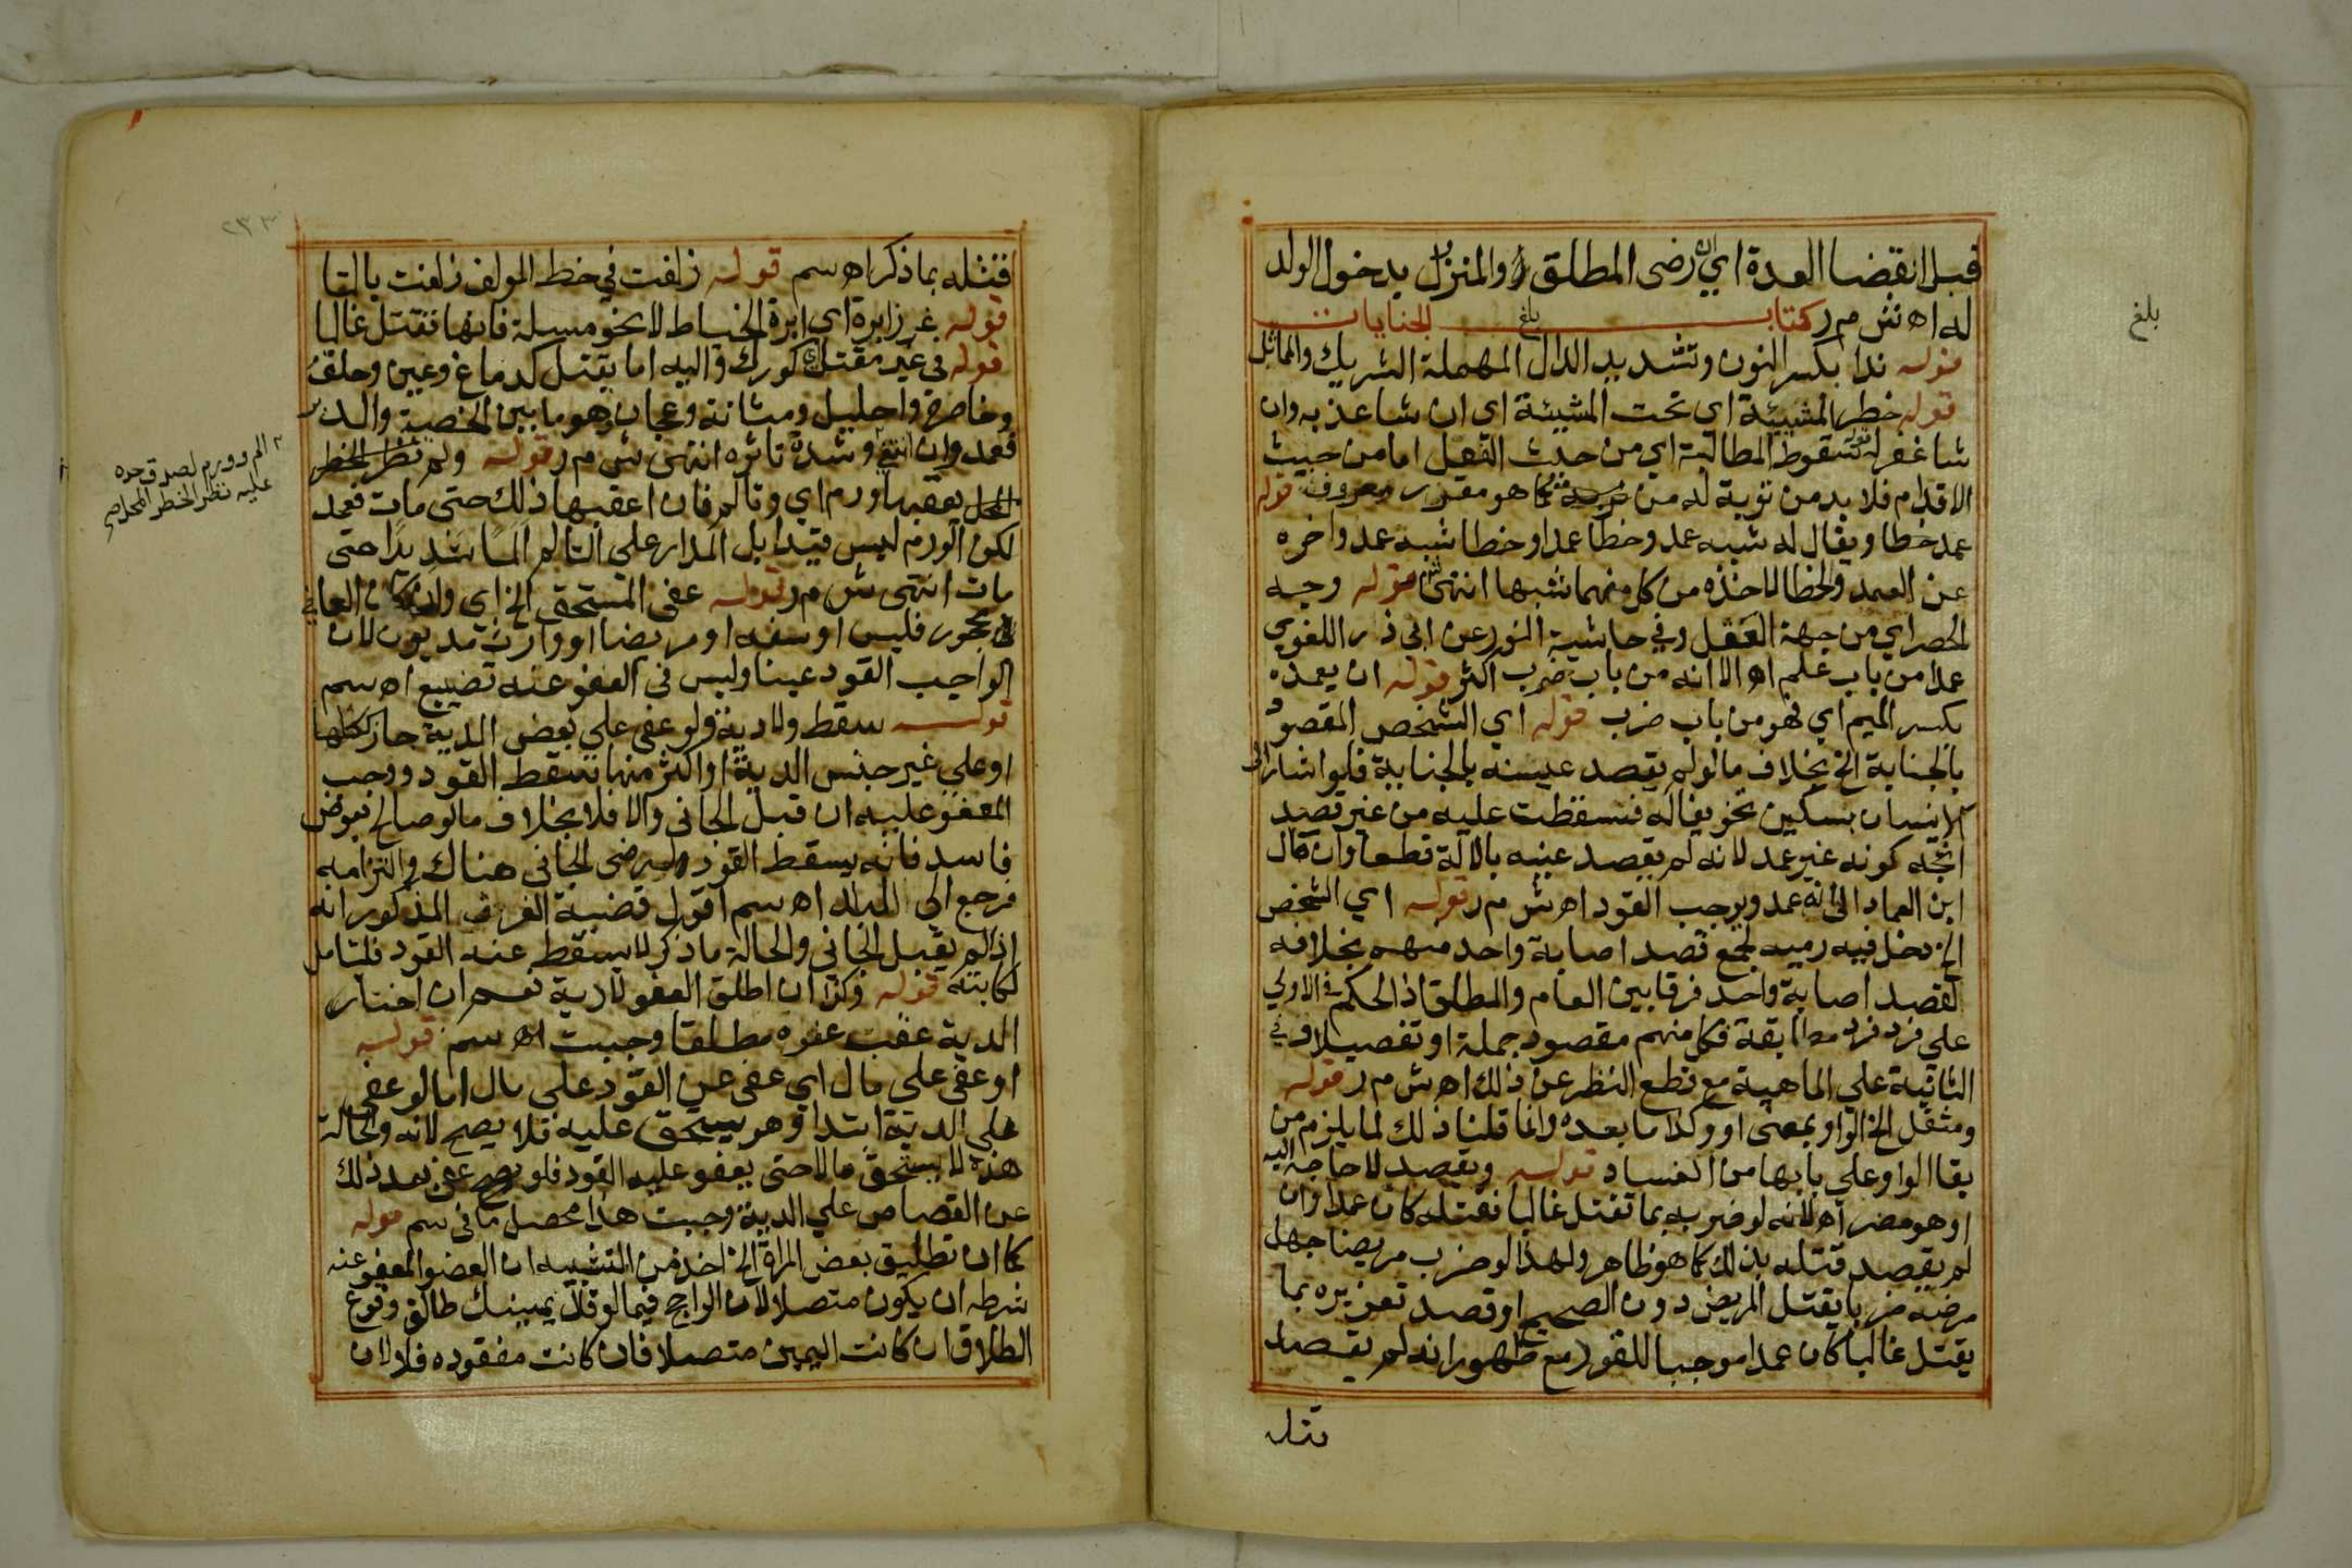 قبل انقضا العدة اي ان رضى المطلق او المنزل يدخول الولد
له اه ش م ر كتاب الجنايات
بلغ
بلغ
قوله ندا بكسر النون وتشديد الدال المهملة الشريك والماثل
قوله خطر المشيئة اي تحت المشيئة اي ان شا عذبه وان
شا غفر له قوله سقوط المطالبة اي من حيث القتل اما من حيث
الاقدام فلا بد من توبة له من كما هو مقرر معروف قوله
عمد خطا ويقال له شبه عمد وخطا عمد او خطا شبه عمد واخره
عن العمد والخطا لاخذه من كل منهما شبها انتهى قوله وجه
الحصر اي من جهة العقل وفي حاشية النور عن ابي ذر اللغوي
عمد من باب علم اه الا انه من باب ضرب اكثر قوله ان يعمده
بكسر الميم اي فهو من باب ضرب قوله اي الشخص المقصود
بالجناية الخ بخلاف ما لو لم يقصد عينه بالجناية فلو اشار الى
الانسان بسكين تخويفا له فسقطت عليه من غير قصد
اتجه كونه غير عمد لانه لم يقصد عينه بالالة قطعا وان قال
ابن العماد الى انه عمد ويوجب القود اه ش م ر قوله اي الشخص
الخ دخل فيه رميه لجمع قصد اصابة واحد منهم بخلافه
لقصد اصابة واحد فرقا بين العام والمطلق اذ الحكم في الاولي
علي فرد فرد مطابقة فكل منهم مقصود جملة او تفصيلا وفي
الثانية علي الماهية مع قطع النظر عن ذلك اه ش م ر قوله
ومثقل الخ الواو بمعنى او وكذا ما بعده وانما قلنا ذلك لما يلزم من
بقا الواو علي بابها من الفساد قوله وبقصد لا حاجة اليه
او هو مضر اه لانه لو ضربه بما تقتل غالبا فقتله كان عمدا وان
لم يقصد قتله بذلك كما هو ظاهر ولهذا لو ضرب مريضا جهل
مرضه ضربا يقتل المريض دون الصحيح او قصد تعزيره بما
يقتل غالبا كان عمدا موجبا للقود مع ظهور انه لم يقصد
قتل
٢٣٣
فتثله بما ذكر اه سم قوله زلفت في خط المولف زلفت بالتا
قوله غرز ابرة اي ابرة الخياط لا نحو مسلة فانها تقتل غالبا
قوله في غير مقتل كورك والية اما بقتل كدماغ وعين وحلق
وخاصرة واحليل ومثانة وعجان وهو ما بين الخصية والدبر
فعمد وان انتفى وشدة تاثره انتهى ش م ر قوله ولم نظر الخطر
المحل بعقبها ورم اي وتالم فان اعقبها ذلك حتى مات فعمد
لكن الورم ليس قيدا بل المدار على التالم الما شديدا حتى
مات انتهى ش م ر قوله عفى المستحق الخ اي وان كان العافي
محجور فليس او سفه او مريضا او وارث مديون لان
الواجب القود عينا وليس في العفو عنه تضييع اه سم
قوله سقط ولا دية ولو عفى علي بعض الدية جاز ككلها
او علي غير جنس الدية او اكثر منها يسقط القود ووجب
المعفو عليه ان قبل الجاني والا فلا بخلاف ما لو صالح بعوض
فاسد فانه يسقط القود لرضى الجاني هناك والتزامه
فرجع الى البدل اه سم اقول قضية الفرق المذكور انه
اذا لم يقبل الجاني والحالة ما ذكر لا يسقط عنه القود فليتامل
لكاتبه قوله وكذا ان اطلق العفو لا دية نعم ان اختار
الدية عقب عفوه مطلقا وجبت اه سم قوله
او عفى على مال اي عفى عن القود على مال اما لو عفي
علي الدية ابتدا وهو يستحق عليه فلا يصح لانه والحالة
هذه لا يستحق مالا حتى يعفو عليه القود فلو عفى بعد ذلك
عن القصاص علي الدية وجبت هذا محصل ما في سم قوله
كما ان تطليق بعض المراة الخ اخذ من التشبيه ان العضو المعفو عنه
شرطه ان يكون متصلا لان الراجح فيما لو قال يمينك طالق وقوع
الطلاق ان كانت اليمين متصلا فان كانت مفقوده فلا لان
الم وورم لصدق حده
عليه نظر الخطر المحل